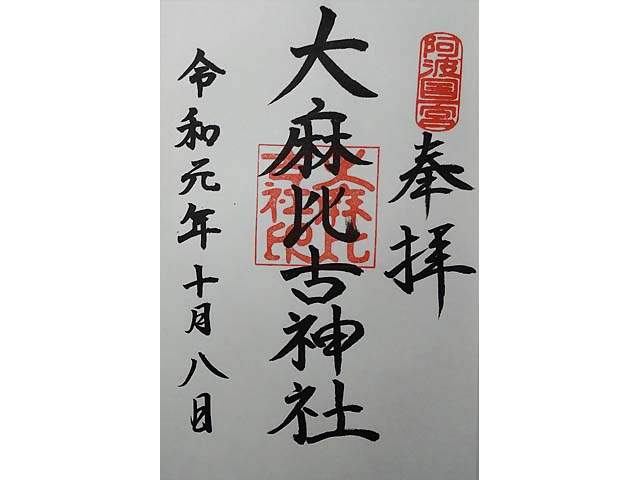 阿波国一宮
奉拝
大麻比古神社
大麻比古社印
令和元年十月八日